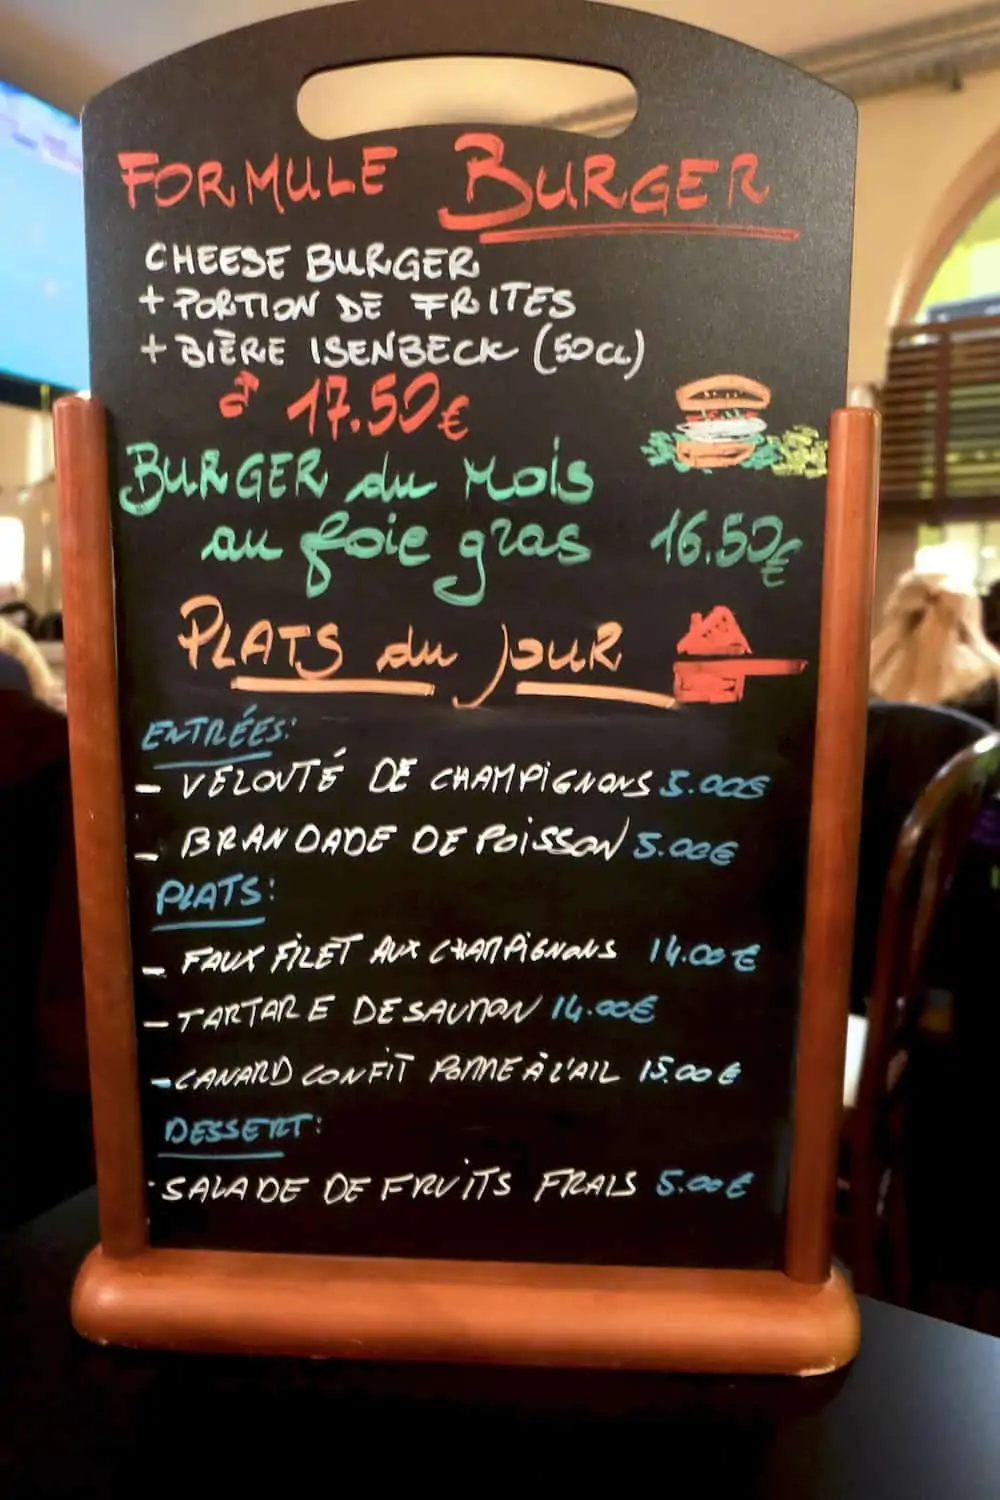 FORMULE BURGER
CHEESE BURGER
+ PORTION DE FRITES
+ BIÈRE ISENBECK (50CL)
à 17.50€
BURGER du Mois
au foie gras 16.50€
PLATS du jOUR
ENTRÉES:
- VELOUTÉ DE CHAMPIGNONS 5.00€
- BRANDADE DE POISSON 5.00€
PLATS:
- FAUX FILET AUX CHAMPIGNONS 14.00€
- TARTARE DE SAUMON 14.00€
- CANARD CONFIT POMME À L'AIL 15.00€
DESSERT:
· SALADE DE FRUITS FRAIS 5.00€